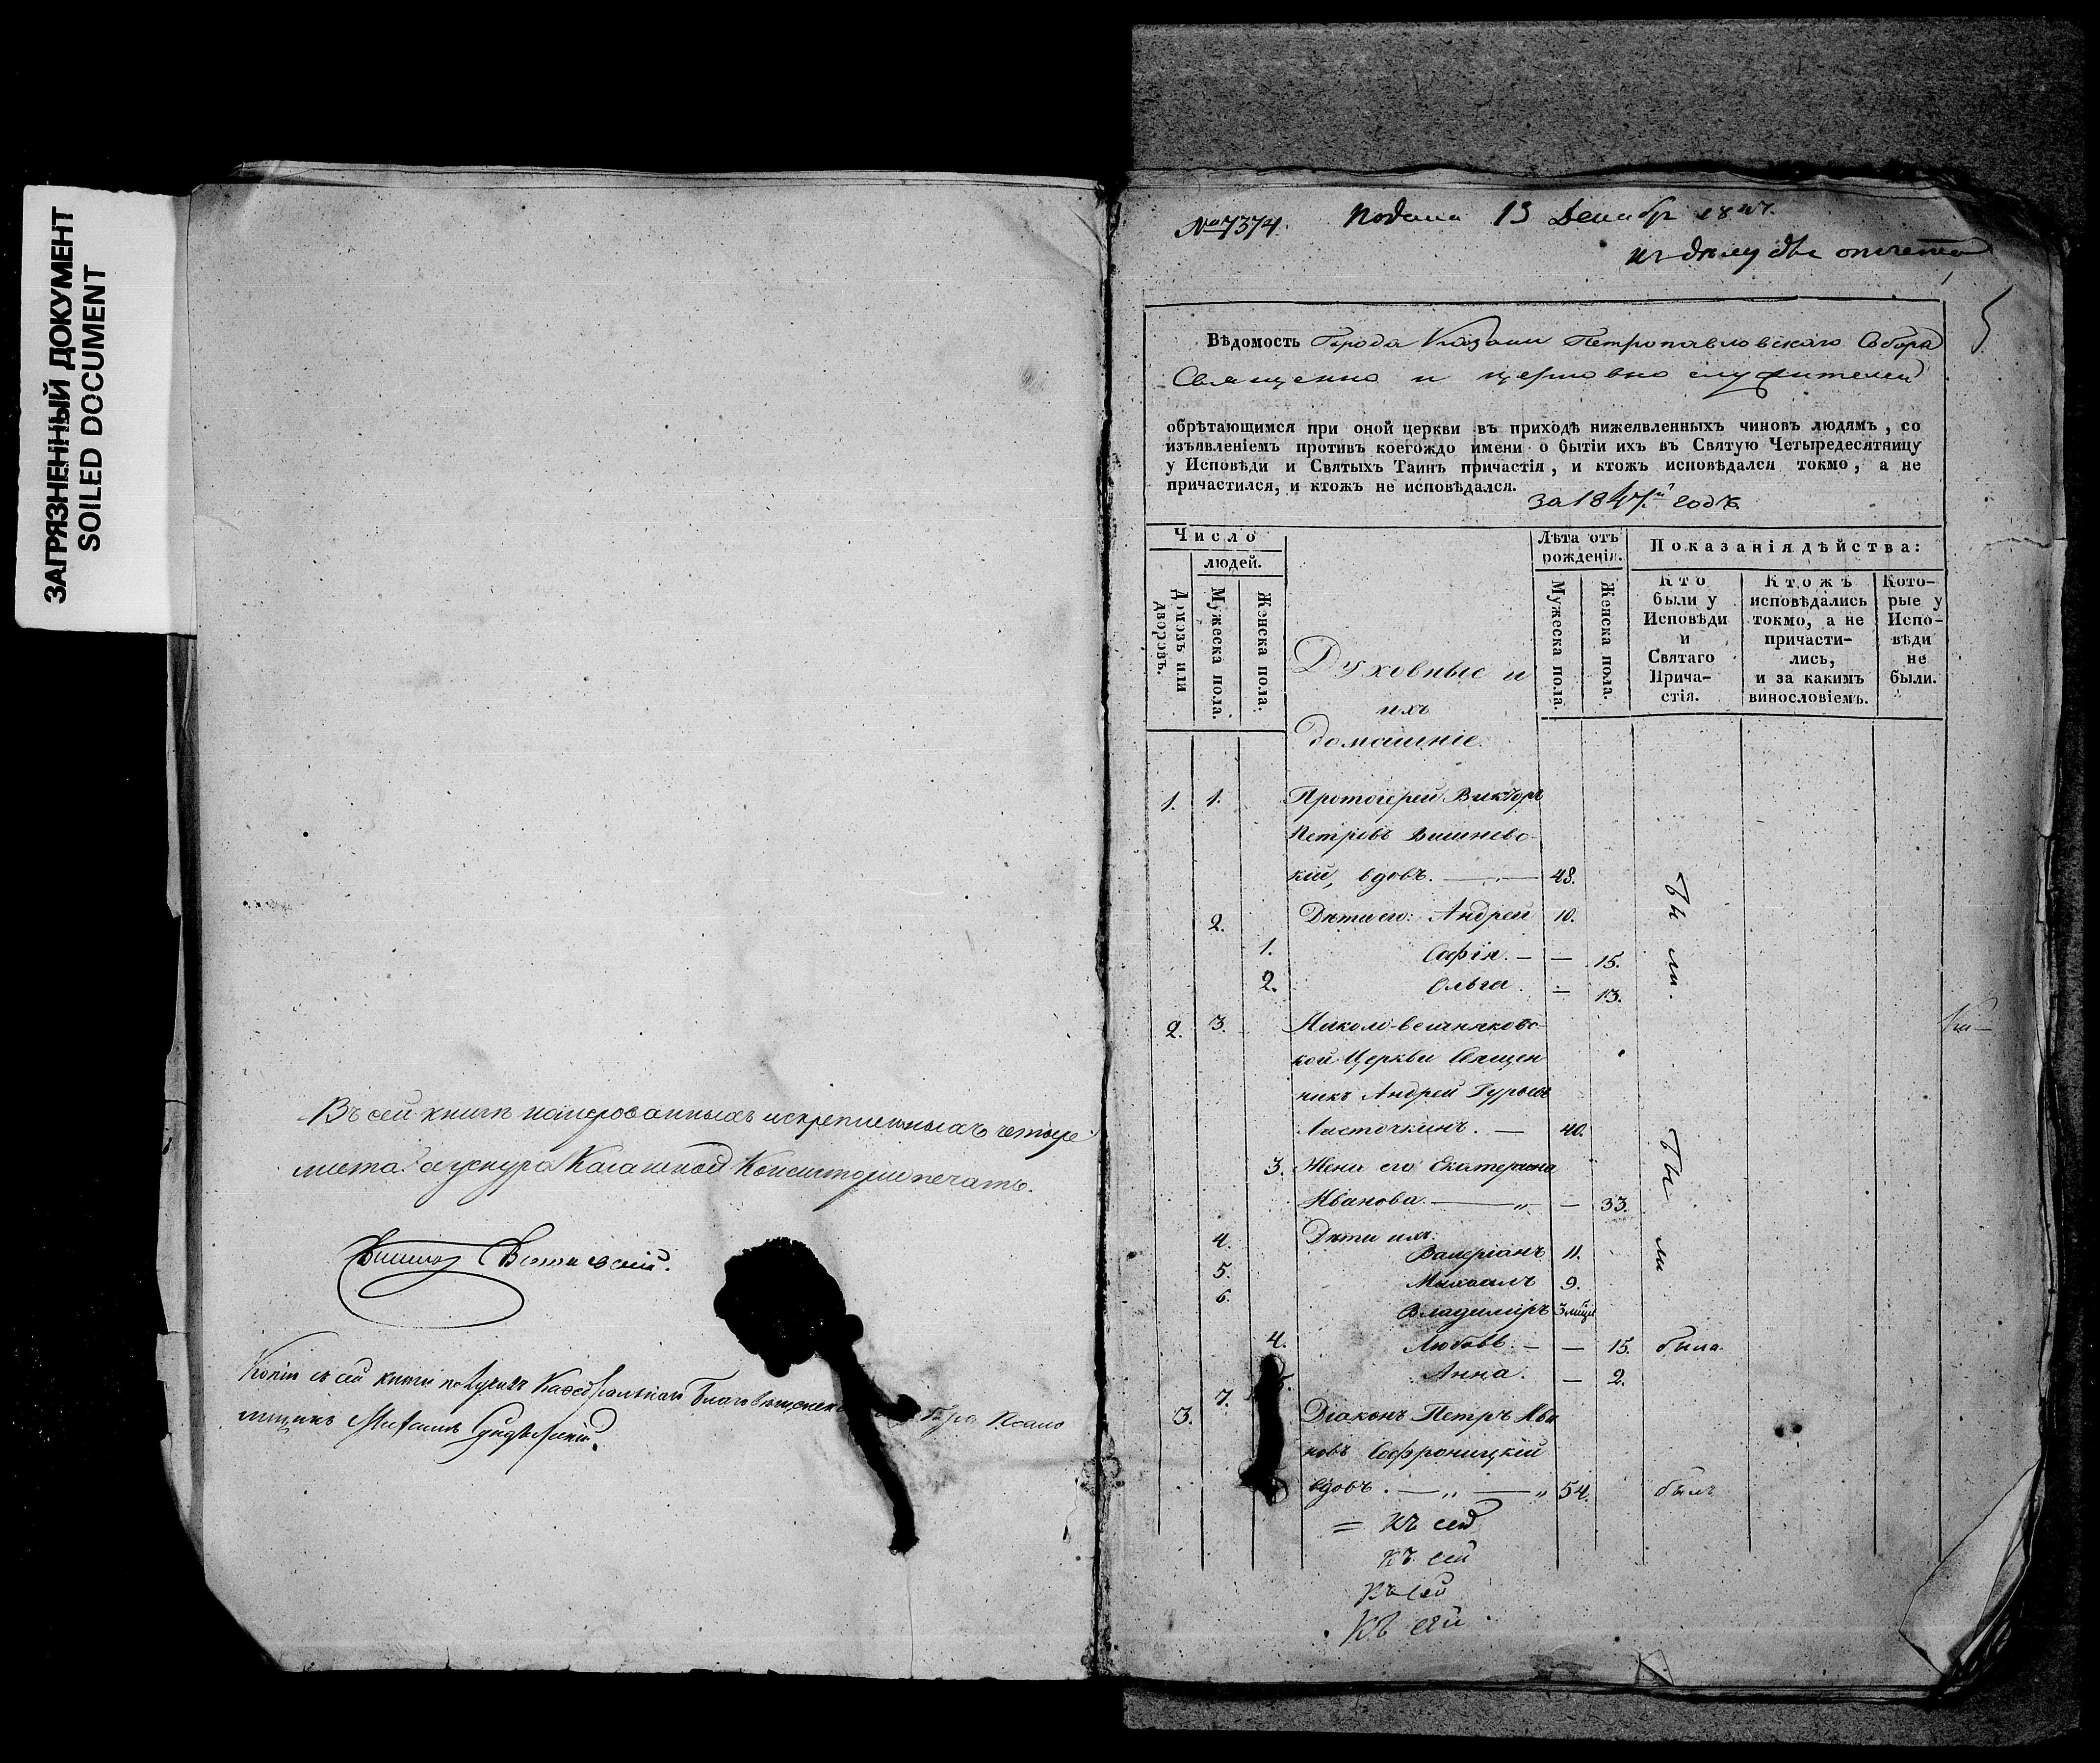 ЗАГРЯЗНЕННЫЙ ДОКУМЕНТ
SOILED DOCUMENT
Въ сей книгѣ нумерованныхъ искрепленныхъ четыре
листа. а уснура Казанской Консисторіи печать.
Копію съ сей книги получилъ Каѳедральнаго Благовѣщенск
№ 7374. Подана 13 Декабр 1847.
къ дѣлу
Вѣдомость Города Казани Петропавловскаго Собора
Священно и церковно служителей
обрѣтающимся при оной церкви въ приходѣ нижеявленныхъ чиновъ людямъ, со
изъявленіемъ противъ коегождо имени о бытіи ихъ въ Святую Четыредесятницу
у Исповѣди и Святыхъ Таинъ причастія, и ктожъ исповѣдался токмо, а не
причастился, и ктожъ не исповѣдался.
за 1847.й годъ.
Число
людей.
Домовъ или дворовъ.
Мужеска пола.
Женска пола.
Духовные и
ихъ
домашніе.
Лѣта отъ рожденія.
Мужеска пола.
Женска пола.
Показанія дѣйства:
Кто были у Исповѣди и Святаго Причастія.
Ктожъ исповѣдались токмо, а не причастились, и за какимъ винословіемъ.
Которые у Исповѣди не были.
1. 1. Протоіерей Викторъ
Петровъ Вишневс-
кій, вдовъ. — 48.
2. Дѣти его: Андрей 10.
1. Софія. — — 15.
2. Ольга. — 13.
Были.
2. 3. Николо-вешняковс-
кой Церкви Священ
никъ Андрей Гурьевъ
Ласточкинъ. — 40.
3. Жена его Екатерина
Иванова. — „ — 33.
4. Дѣти ихъ:
Валеріанъ 11.
5. Михаилъ 9.
6. Владиміръ 3 мѣсц
Были
4. Любовь. — — 15. была
5. Анна. — 2.
3. 7. Діаконъ Петръ Ива
новъ Софроницкій
вдовъ. — „ — „ 54. былъ
= Къ сей
къ сей
Къ сей
Къ сей